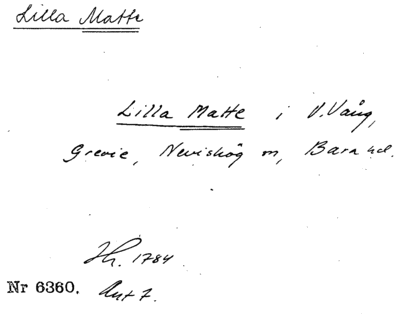 Lilla Matte
Lilla Matte i V. Vång,
Grevie, Nevishög sn, Bara hd.
Jh. 1784
Nr 6360. Akt 7.